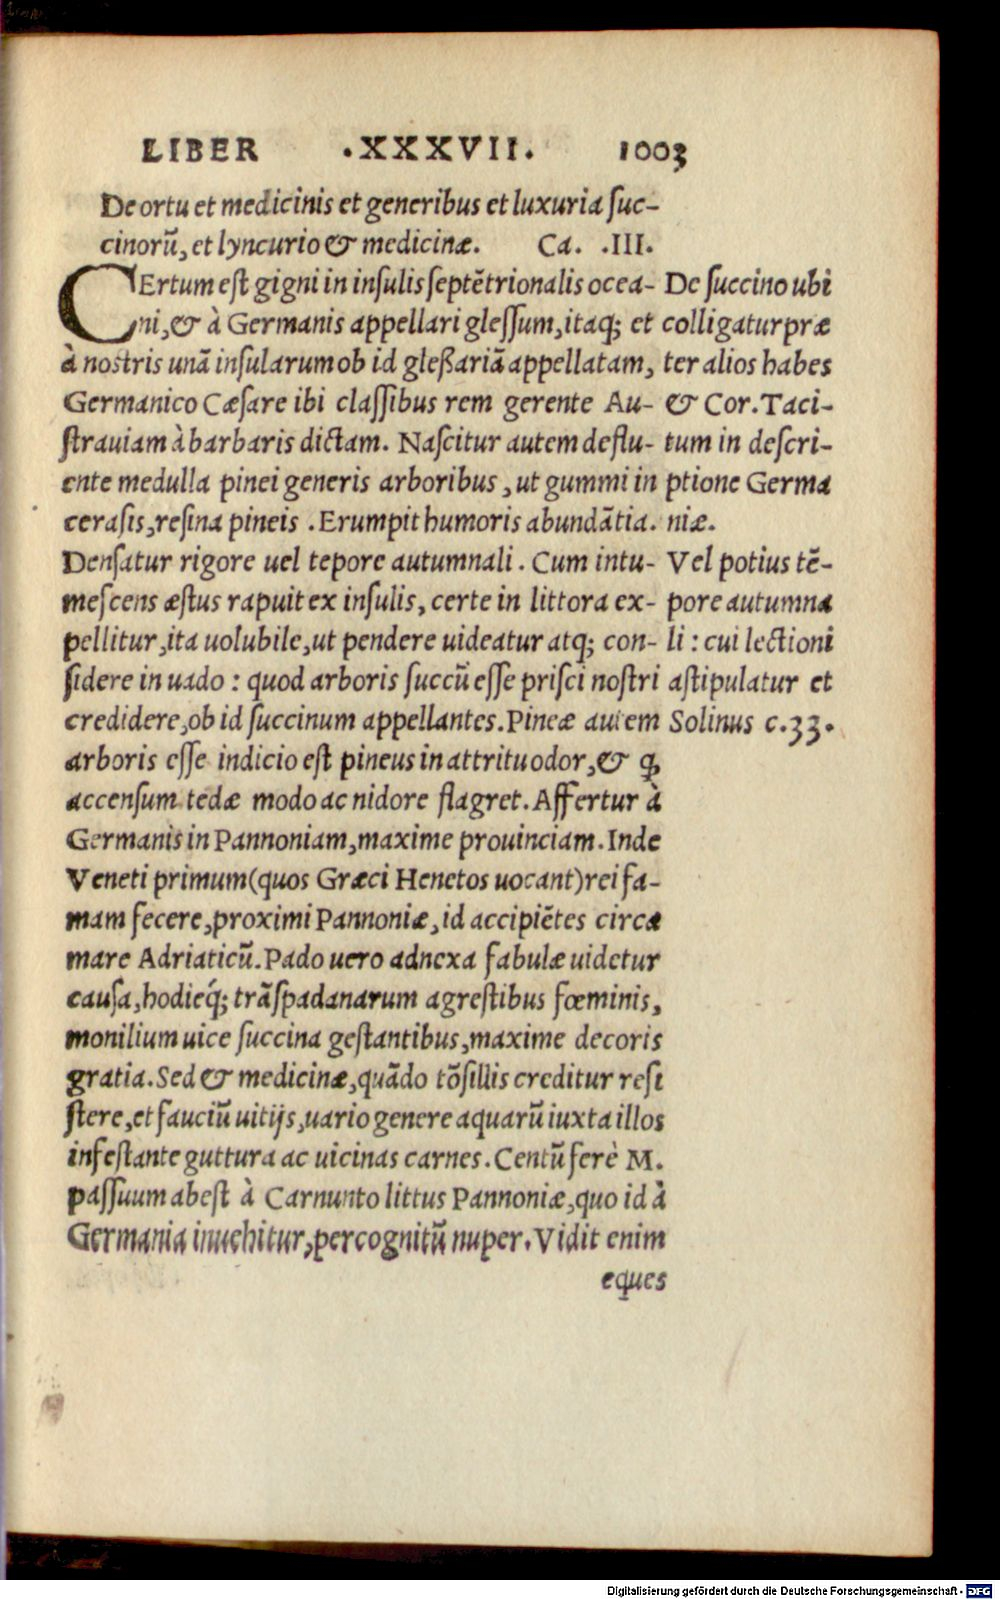 LIBER .XXXVII. 1003
De ortu et medicinis et generibus et luxuria ſuc-
cinorũ, et lyncurio & medicinæ. Ca. .III.
CErtum eſt gigni in inſulis ſeptẽtrionalis ocea-
ni, & à Germanis appellari gleſſum, itaq; et
à nostris unã inſularum ob id gleßariã appellatam,
Germanico Cæſare ibi claſſibus rem gerente Au-
ſtrauiam à barbaris dictam. Naſcitur autem deflu-
ente medulla pinei generis arboribus, ut gummi in
ceraſis, reſina pineis. Erumpit humoris abundãtia.
Denſatur rigore uel tepore autumnali. Cum intu-
meſcens æſtus rapuit ex inſulis, certe in littora ex-
pellitur, ita uolubile, ut pendere uideatur atq; con-
ſidere in uado : quod arboris ſuccũ eſſe priſci noſtri
credidere, ob id ſuccinum appellantes. Pineæ autem
arboris eſſe indicio eſt pineus in attritu odor, & ꝙ
accenſum tedæ modo ac nidore flagret. Affertur à
Germanis in Pannoniam, maxime prouinciam. Inde
Veneti primum (quos Græci Henetos uocant) rei fa-
mam fecere, proximi Pannoniæ, id accipiẽtes circa
mare Adriaticũ. Pado uero adnexa fabulæ uidetur
cauſa, hodieq́; trãſpadanarum agreſtibus fœminis,
monilium uice ſuccina geſtantibus, maxime decoris
gratia. Sed & medicinæ, quãdo tõſillis creditur reſi
ſtere, et fauciũ uitijs, uario genere aquarũ iuxta illos
infeſtante guttura ac uicinas carnes. Centũ ferè M.
paſſuum abeſt à Carnunto littus Pannoniæ, quo id à
Germania inuehitur, percognitũ nuper. Vidit enim
eques
De ſuccino ubi
colligatur præ
ter alios habes
& Cor. Taci-
tum in deſcri-
ptione Germa
niæ.
Vel potius tẽ-
pore autumna
li : cui lectioni
aſtipulatur et
Solinus c.33.
Digitalisierung gefördert durch die Deutsche Forschungsgemeinschaft - DFG